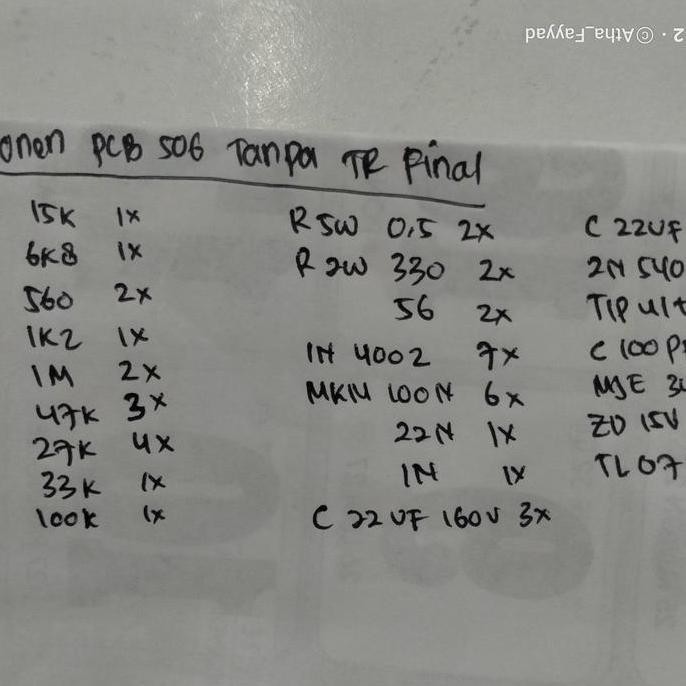 2 · ©Atha_Fayyad
onen PCB 506 Tanpa TR Final
15K 1x
6K8 1x
560 2x
1K2 1x
1M 2x
47K 3x
27K 4x
33K 1x
100K 1x
R 5W 0,5 2x
R 2W 330 2x
56 2x
1N 4002 7x
MKM 100N 6x
22N 1x
1N 1x
C 22UF 160V 3x
C 22UF
2N 540
TIP 41
C 100P
MJE 3
ZD 15V
TL07